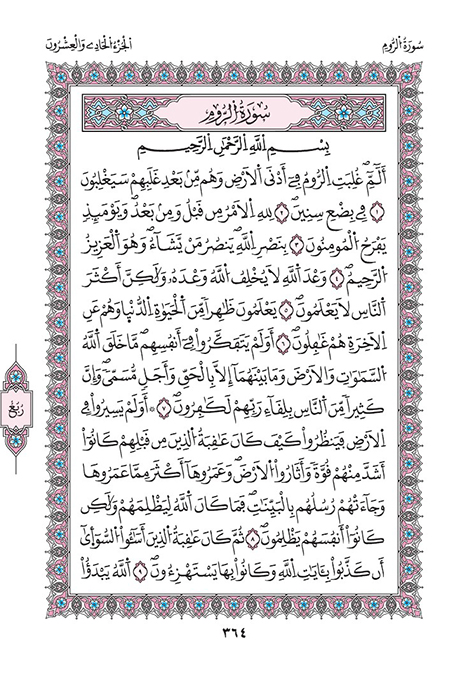 سُورَةُ الرُّومِ
الْجُزْءُ الْحَادِي وَالْعِشْرُونَ
سُورَةُ الرُّومِ
بِسْمِ اِللَّهِ اِلرَّحْمَٰنِ اِلرَّحِيمِ
أَلَٓمِّٓۖ غُلِبَتِ اِ۬لرُّومُ فِےٓ أَدْنَي اَ۬لَارْضِ وَهُم مِّنۢ بَعْدِ غَلَبِهِمْ سَيَغْلِبُونَ
١ فِے بِضْعِ سِنِينَۖ ٢ لِلهِ اِ۬لَامْرُ مِن قَبْلُ وَمِنۢ بَعْدُۖ وَيَوْمَئِذٖ
يَفْرَحُ اُ۬لْمُومِنُونَ ٣ بِنَصْرِ اِ۬للَّهِۖ يَنصُرُ مَنْ يَّشَآءُۖ وَهُوَ اَ۬لْعَزِيزُ
اُ۬لرَّحِيمُۖ ٤ وَعْدَ اَ۬للَّهِ لَا يُخْلِفُ اُ۬للَّهُ وَعْدَهُۥ وَلَٰكِنَّ أَكْثَرَ
اَ۬لنَّاسِ لَا يَعْلَمُونَۖ ٥ يَعْلَمُونَ ظَٰهِراٗ مِّنَ اَ۬لْحَيَوٰةِ اِ۬لدُّنْي۪ا وَهُمْ عَنِ
اِ۬لَاخِرَةِ هُمْ غَٰفِلُونَۖ ٦ أَوَلَمْ يَتَفَكَّرُواْ فِےٓ أَنفُسِهِمۖ مَّا خَلَقَ اَ۬للَّهُ
اُ۬لسَّمَٰوَٰتِ وَالَارْضَ وَمَا بَيْنَهُمَآ إِلَّا بِالْحَقِّ وَأَجَلٖ مُّسَمّيٗۖ وَإِنَّ
كَثِيراٗ مِّنَ اَ۬لنَّاسِ بِلِقَآءِ رَبِّهِمْ لَكَٰفِرُونَۖ ٧ ۞ أَوَلَمْ يَسِيرُواْ فِے
اِ۬لَارْضِ فَيَنظُرُواْ كَيْفَ كَانَ عَٰقِبَةُ اُ۬لذِينَ مِن قَبْلِهِمْ كَانُوٓاْ
أَشَدَّ مِنْهُمْ قُوَّةٗ وَأَثَارُواْ اُ۬لَارْضَۖ وَعَمَرُوهَآ أَكْثَرَ مِمَّا عَمَرُوهَا
وَجَآءَتْهُمْ رُسُلُهُم بِالْبَيِّنَٰتِۖ فَمَا كَانَ اَ۬للَّهُ لِيَظْلِمَهُمْ وَلَٰكِن
كَانُوٓاْ أَنفُسَهُمْ يَظْلِمُونَۖ ٨ ثُمَّ كَانَ عَٰقِبَةُ اُ۬لذِينَ أَسَٰٓـُٔواْ اُ۬لسُّوٓأ۪يٰٓ
أَن كَذَّبُواْ بِـَٔايَٰتِ اِ۬للَّهِ وَكَانُواْ بِهَا يَسْتَهْزِءُونَۖ ٩ اَ۬للَّهُ يَبْدَؤُاْ
رُبُع
٣٦٤